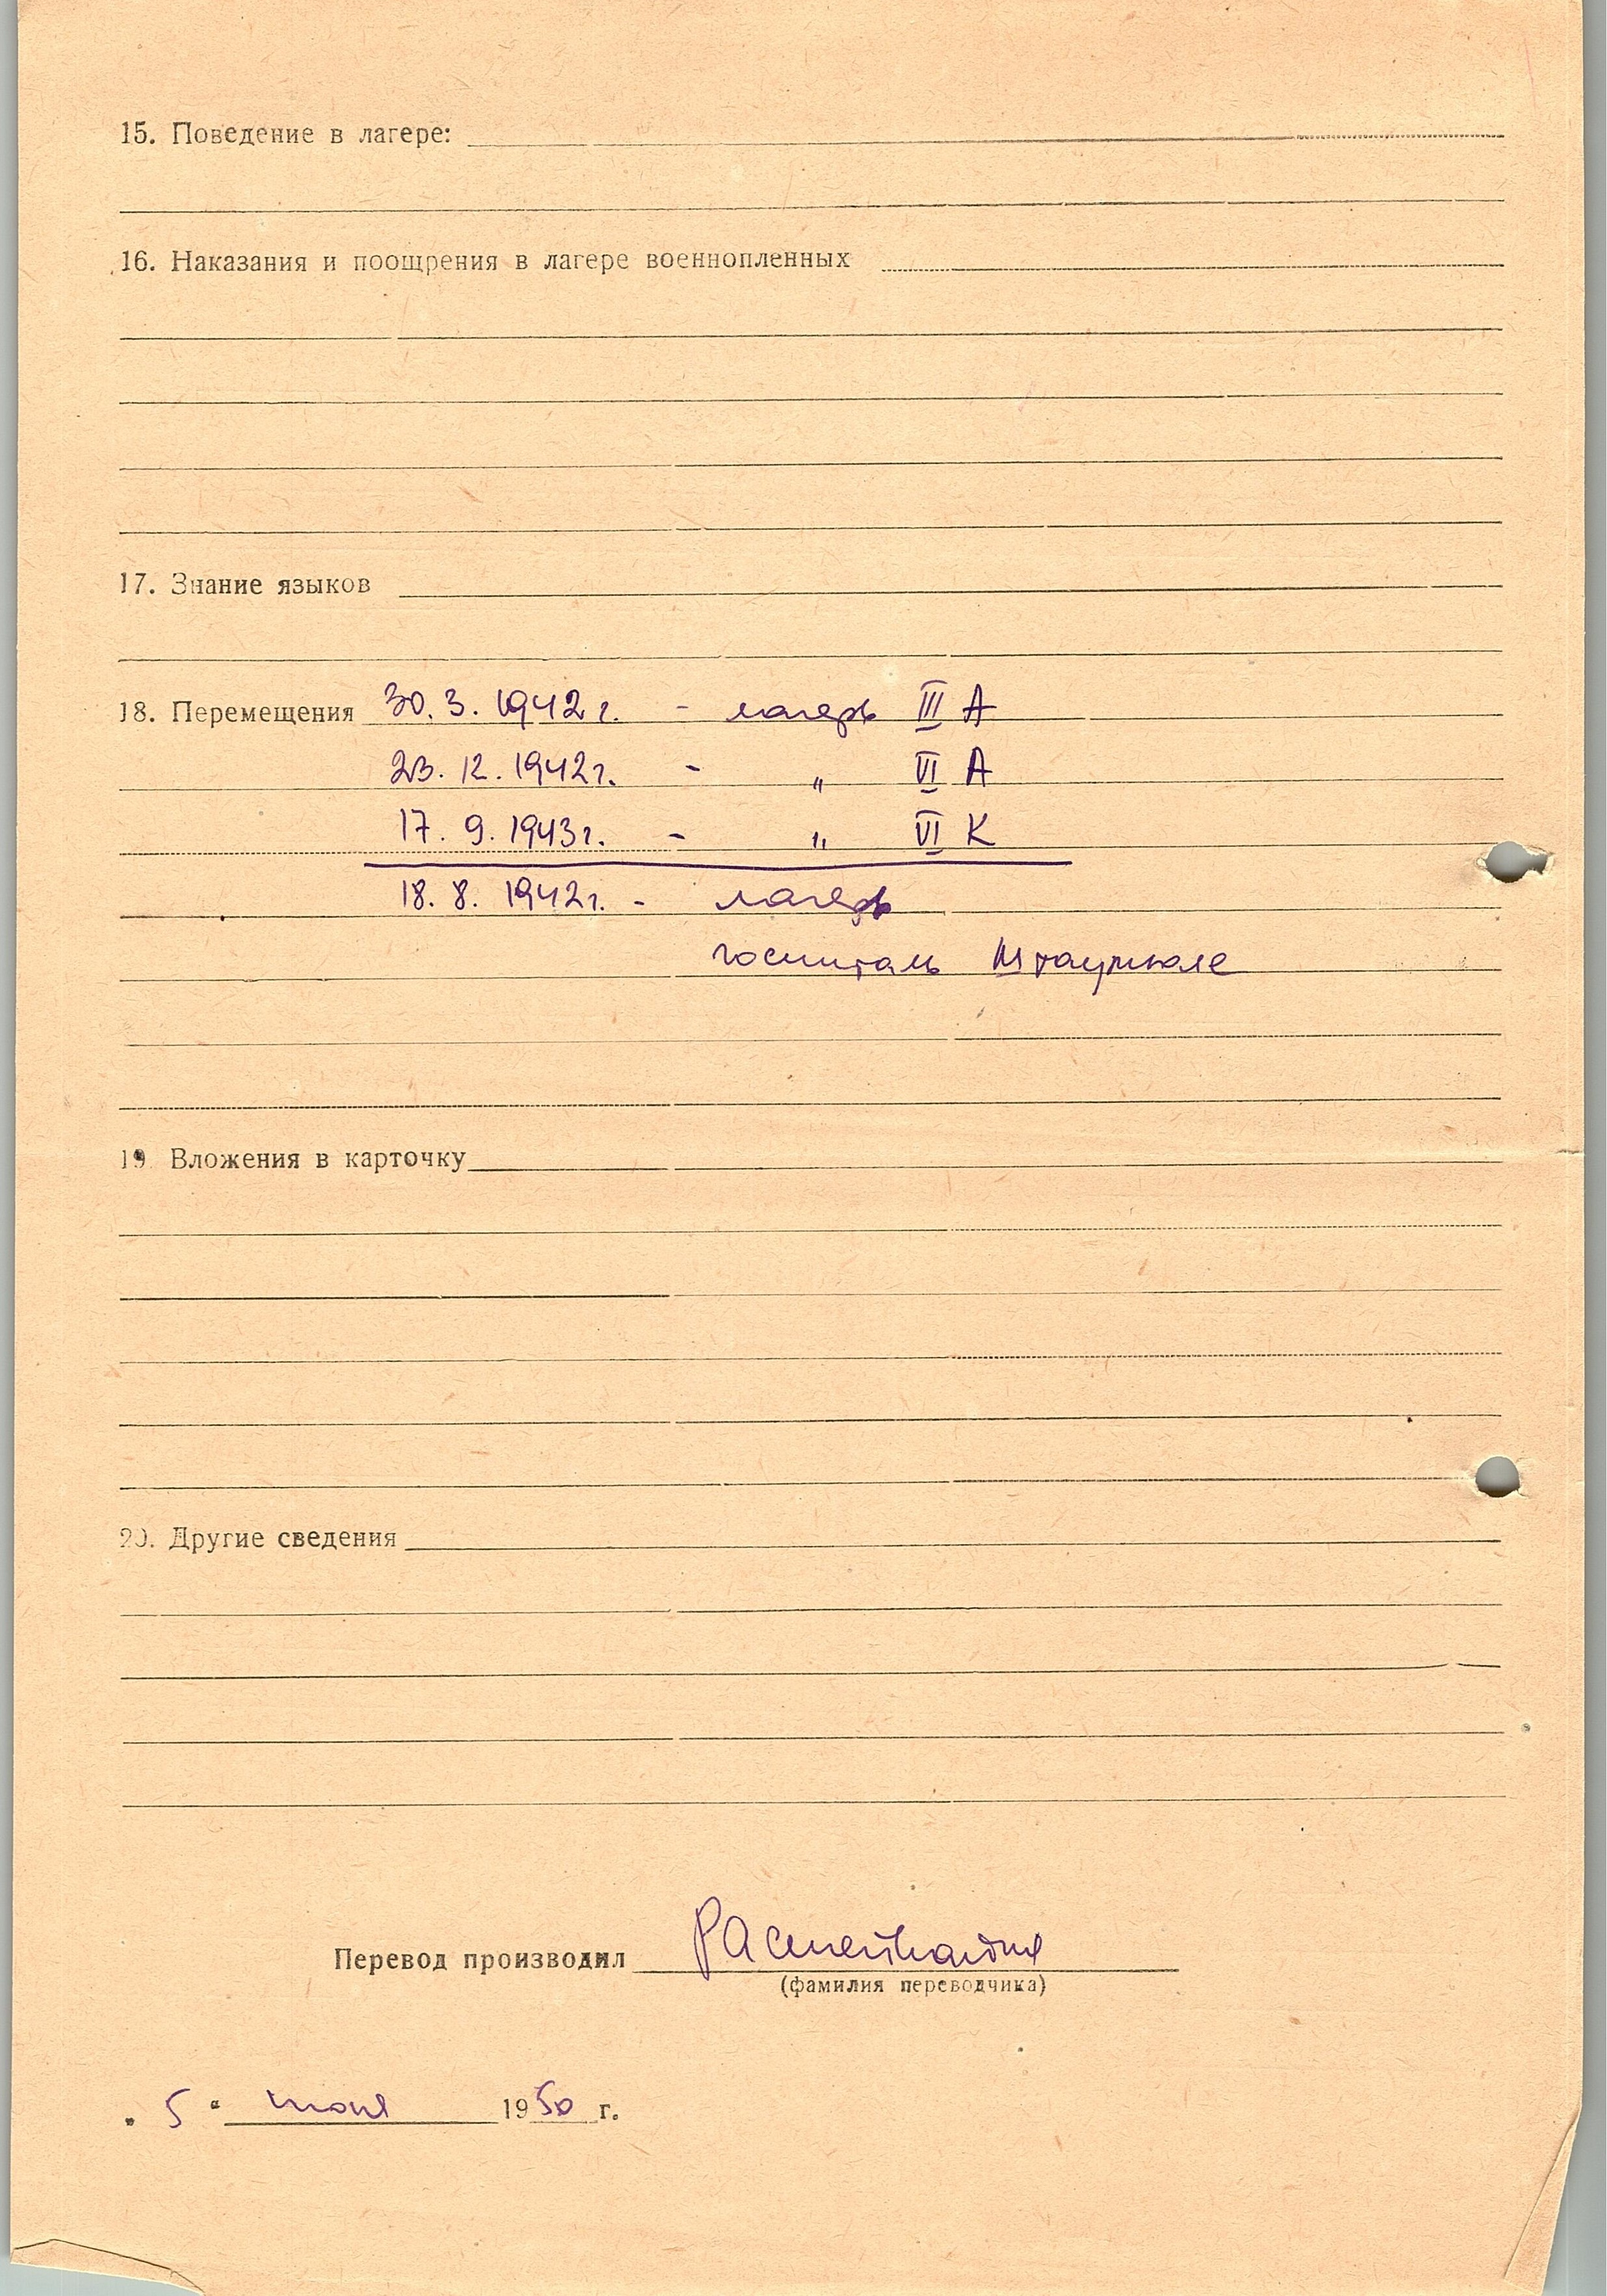 15. Поведение в лагере:
16. Наказания и поощрения в лагере военнопленных
17. Знание языков
18. Перемещения 30.3.1942 г. - лагерь III А
23.12.1942 г. - " VI А
17.9.1943 г. - " VI К
18.8.1942 г. - лагерь
госпиталь
19. Вложения в карточку
20. Другие сведения
Перевод производил
(фамилия переводчика)
" 5 " июня 1950 г.